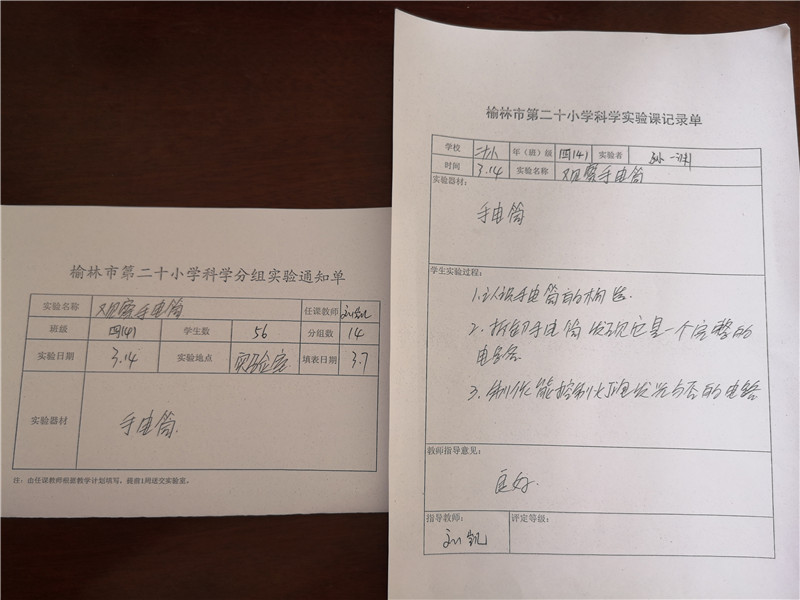 榆林市第二十小学科学分组实验通知单
实验名称 观察手电筒 任课教师 刘凯
班级 四(4) 学生数 56 分组数 14
实验日期 3.14 实验地点 实验室 填表日期 3.7
实验器材 手电筒
注：由任课教师根据教学计划填写，提前1周送交实验室。
榆林市第二十小学科学实验课记录单
学校 二十小 年（班）级 四(4) 实验者
时间 3.14 实验名称 观察手电筒
实验器材：
手电筒
学生实验过程：
1.认识手电筒的构造.
2.拆卸手电筒发现它是一个完整的
电路.
3.制作能控制灯泡发光与否的电路
教师指导意见：
良好.
指导教师： 评定等级：
刘凯